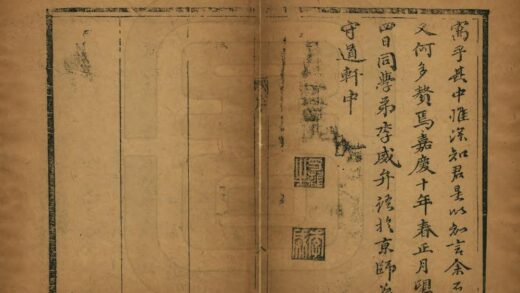 寓乎其中惟深知君是以知言余
又何多贅焉嘉慶十年春正月朢
四日同學弟李威弁語於京師
守道軒中